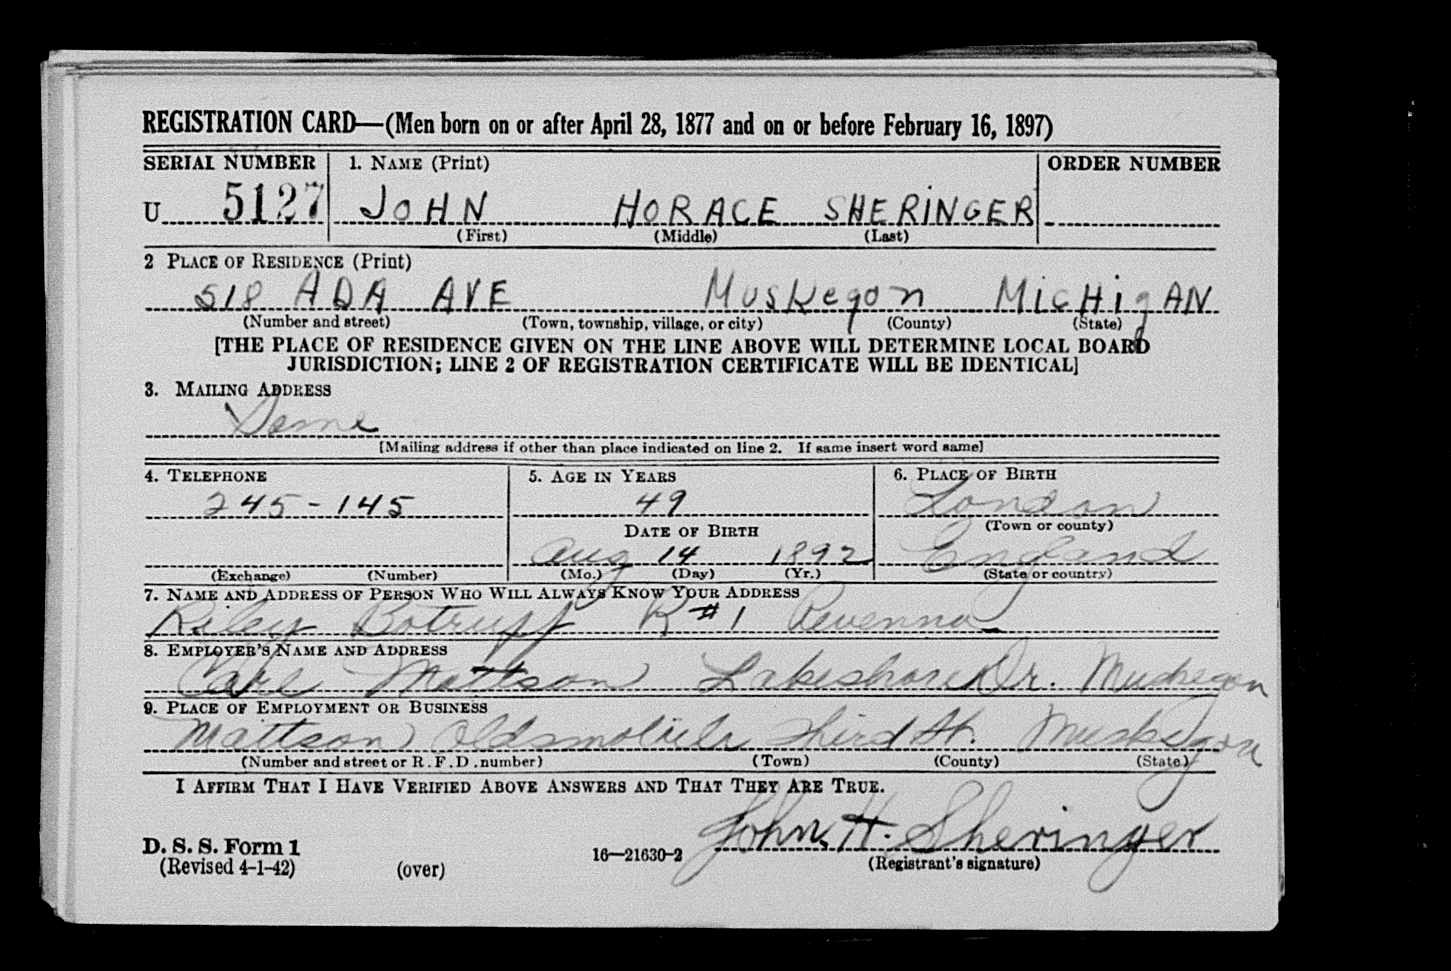 REGISTRATION CARD—(Men born on or after April 28, 1877 and on or before February 16, 1897)
SERIAL NUMBER 1. NAME (Print) ORDER NUMBER
U 5127 JOHN HORACE SHERINGER
(First) (Middle) (Last)
2 PLACE OF RESIDENCE (Print)
518 ADA AVE Muskegon MICHigAN
(Number and street) (Town, township, village, or city) (County) (State)
[THE PLACE OF RESIDENCE GIVEN ON THE LINE ABOVE WILL DETERMINE LOCAL BOARD
JURISDICTION; LINE 2 OF REGISTRATION CERTIFICATE WILL BE IDENTICAL]
3. MAILING ADDRESS
Same
[Mailing address if other than place indicated on line 2. If same insert word same]
4. TELEPHONE 5. AGE IN YEARS 6. PLACE OF BIRTH
245-145 49 London
DATE OF BIRTH (Town or county)
Aug 14 1892 England
(Exchange) (Number) (Mo.) (Day) (Yr.) (State or country)
7. NAME AND ADDRESS OF PERSON WHO WILL ALWAYS KNOW YOUR ADDRESS
Riley Botruff R #1 Ravenna
8. EMPLOYER'S NAME AND ADDRESS
Carl Mattson Lakeshore Dr. Muskegon
9. PLACE OF EMPLOYMENT OR BUSINESS
Mattson Oldsmobile Third St. Muskegon
(Number and street or R. F. D. number) (Town) (County) (State)
I AFFIRM THAT I HAVE VERIFIED ABOVE ANSWERS AND THAT THEY ARE TRUE.
John H. Sheringer
D. S. S. Form 1
(Revised 4-1-42) (over) 16—21630-2 (Registrant's signature)